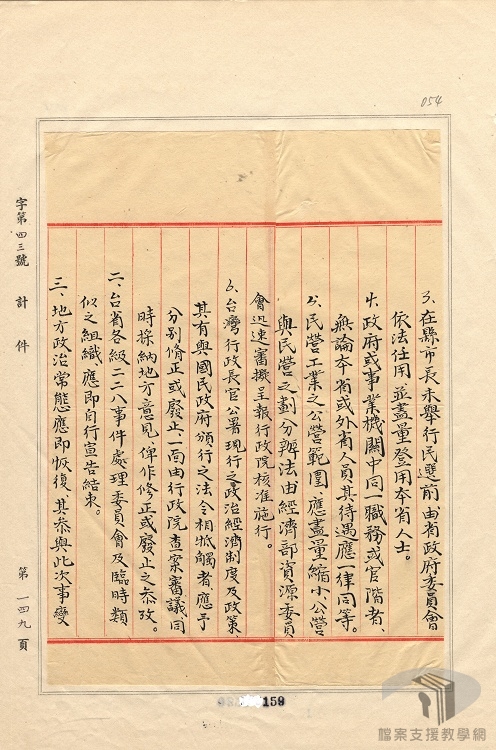 054
3、在縣市長未舉行民選前由省政府委員會
依法任用並盡量登用本省人士。
4、政府或事業機關中同一職務或官階者、
無論本省或外省人員其待遇應一律同等。
5、民營工業之公營範圍應盡量縮小、公營
與民營之劃分辦法由經濟部資源委員
會迅速審擬呈報行政院核准施行。
6、台灣行政長官公署現行之政治經濟制度及政策、
其有與國民政府頒行之法令相牴觸者、應予
分別脩正或廢止一面由行政院查案審議、同
時採納地方意見俾作修正或廢止之參攷。
二、台省各級二二八事件處理委員會及臨時類
似之組織應即自行宣告結束。
三、地方政治常態應即恢復其參與此次事變
字第四三號 計 件
第一四九頁
159
檔案支援教學網